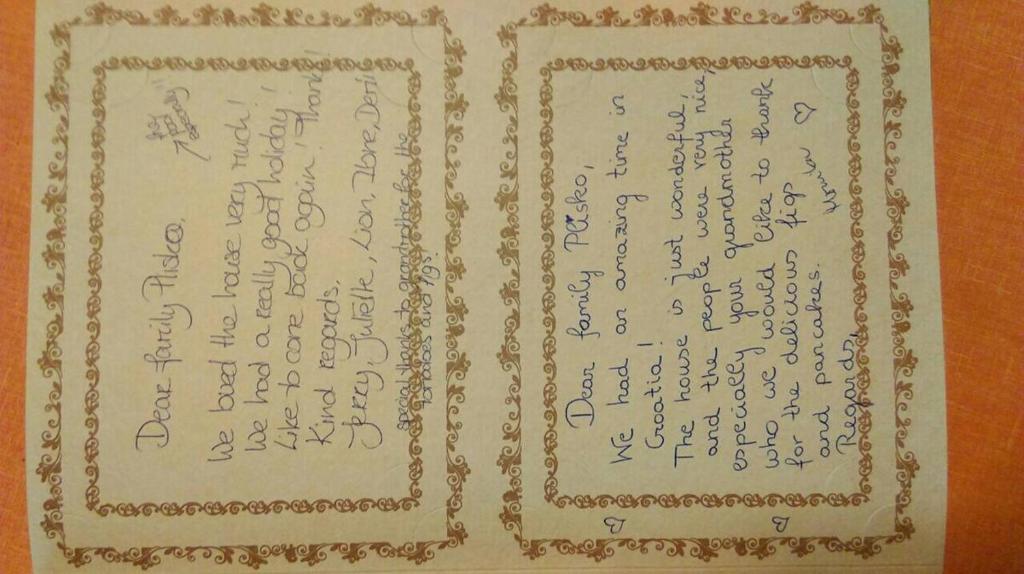 Dear family Plisko,
We loved the house very much!
We had a really good holiday!
Like to come back again! Thank
Kind regards,
Jerrey, Juliette, Lion,
special thanks to grandmother for the
and figs!
Dear family Plisko,
We had an amazing time in
Croatia!
The house is just wonderful,
and the people were very nice,
especially your grandmother
who we would like to thank
for the delicious figs
and pancakes.
Regards,